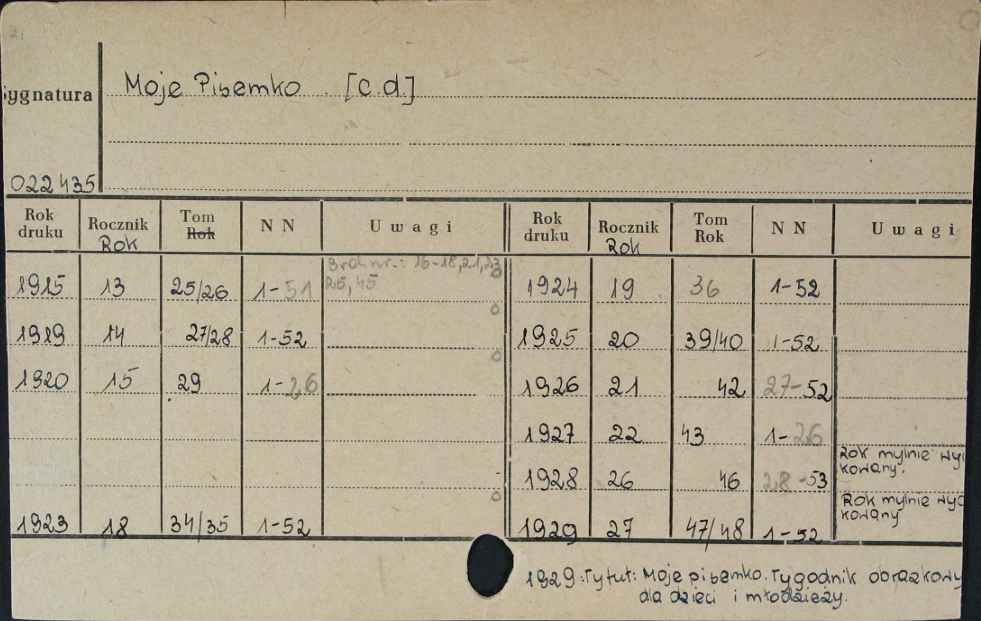 Moje Pisemko. [c.d.]
ygnatura
022435
Rok druku Rocznik Rok Tom Rok NN Uwagi Rok druku Rocznik Rok Tom Rok NN Uwagi
1915 13 25/26 1-51 Brak nr.: 16-18,21,23 25,45 1924 19 36 1-52
1919 14 27/28 1-52 1925 20 39/40 1-52
1920 15 29 1-26 1926 21 42 27-52
1927 22 43 1-26
1928 26 46 28-53 Rok mylnie wy kowany.
1923 18 34/35 1-52 1929 27 47/48 1-52 Rok mylnie wyd kowany
1929: Tytuł: Moje pisemko. Tygodnik obrazkowy
dla dzieci i młodzieży.